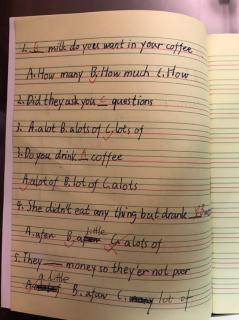 1. b milk do you want in your coffee
A. How many B. How much C. How
2. Did they ask you c questions
2. A. alot B. alots of C. lots of
3. Do you drink A coffee
A. alotof B. lot of C. alots
4. She didn't eat any thing but drank
A. afew B. a little C. alots of
5. They ___ money so they'er not poor
A. a little B. afew C. lot of